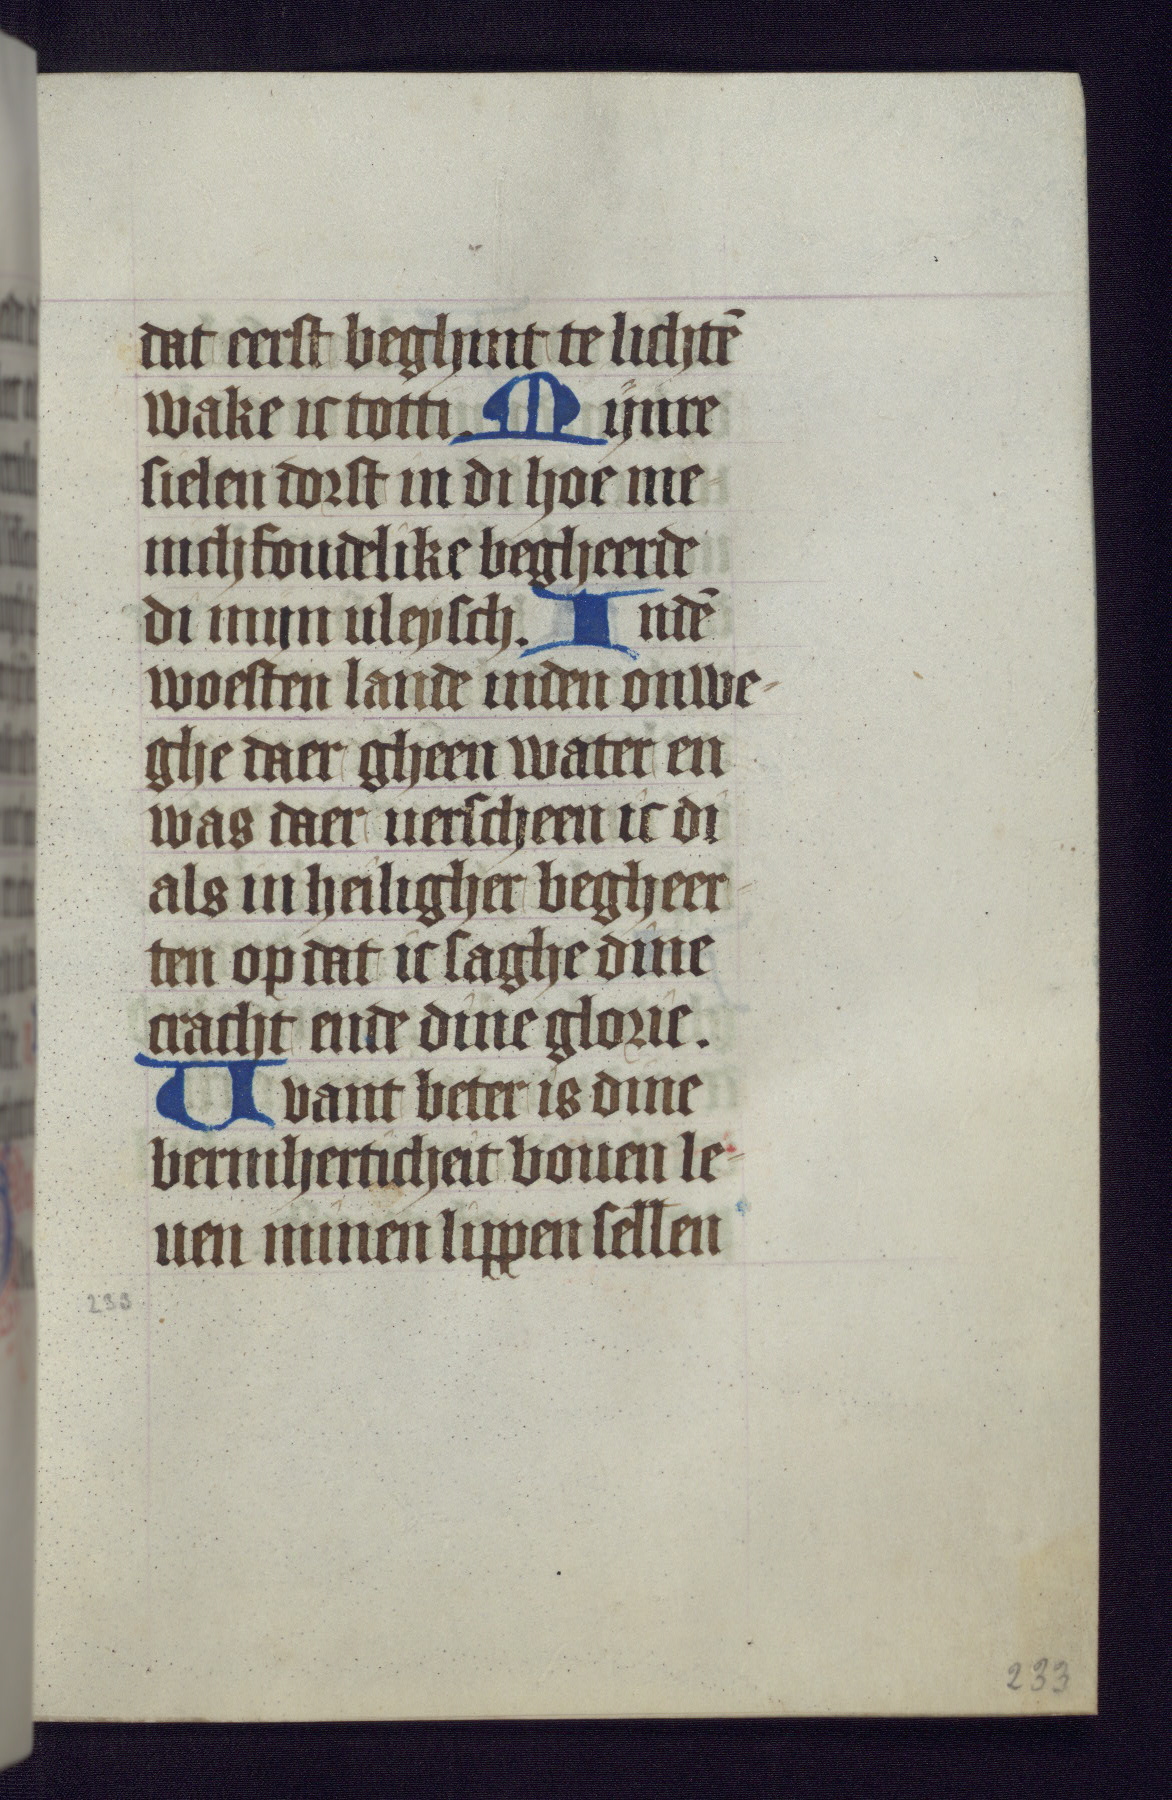 dat eerst beghint te lichtē
wake ic totti. Mijnre
sielen dorst in di hoe me-
nichfoudelike begheerde
di mijn uleysch. Indē
woesten lande inden onwe-
ghe daer gheen water en
was daer uerscheen ic di
als in heiligher begheer-
ten op dat ic saghe dine
cracht ende dine glorie.
Uvant beter is dine
bermherticheit bouen le-
uen minen lippen sellen
233
233